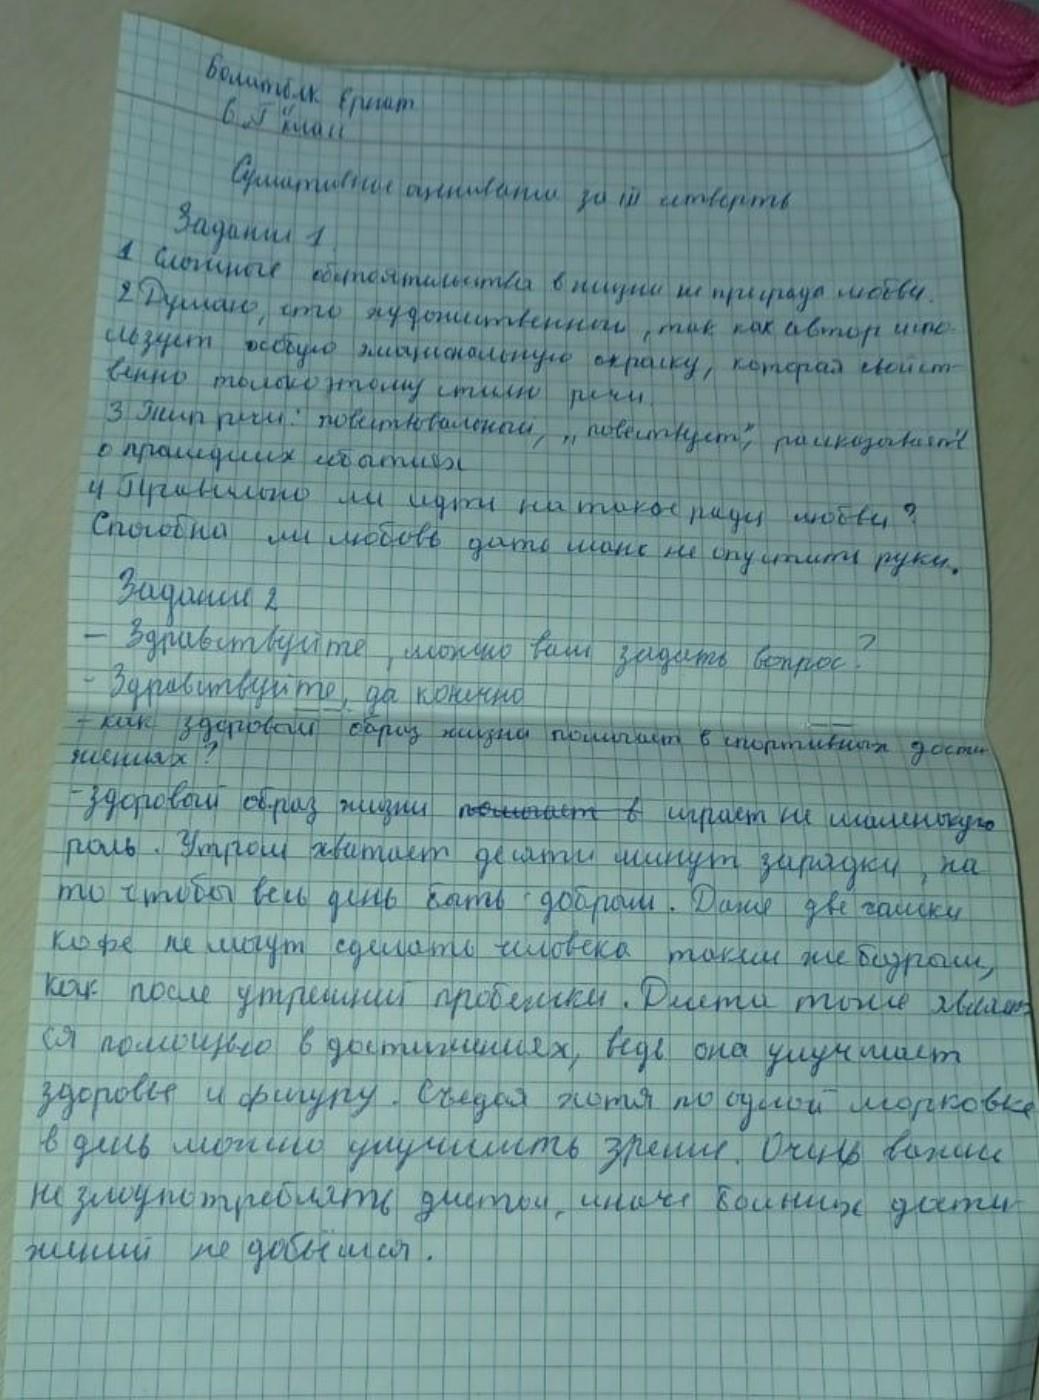 Болатбек Ернат
6 "Г" класс
Сумативное оценивание за III четверть
Задание 1
1 Сложные обстоятельства в жизни не преграда любви.
2 Думаю, что художественный, так как автор испо-
льзует особую эмоциональную окраску, которая свойст-
венно только этому стилю речи.
3 Тип речи: повествовальный, „повествует", рассказывает
о прошедших событиях
4 Правильно ли идти на такое ради любви?
Способна ли любовь дать шанс не опустить руки.
Задание 2
- Здравствуйте, можно вам задать вопрос?
- Здравствуйте, да конечно
- как здоровый образ жизни помогает в спортивных дости-
жениях?
- здоровый образ жизни помогает в играет не маленькую
роль. Утром хватает десяти минут зарядки, на
то чтобы весь день быть добрым. Даже две чашки
кофе не могут сделать человека таким же бодрым,
как после утренний пробежки. Диета тоже являет
ся помощью в достижениях, ведь она улучшает
здоровье и фигуру. Съедая хотя по одной морковке
в день можно улучшить зрение. Очень важно
не злоупотреблять диетой, иначе больших дости-
жений не добьёмся.